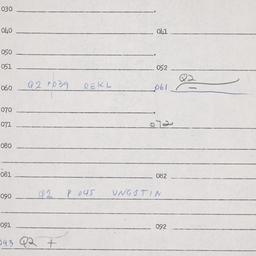 030
040 041
050
051 052
Q2
060 Q2 P039 OEKL 061 —
070
071 072
080
081 082
090 Q2 P 045 UNGSTIN
091 092
093 Q2 +